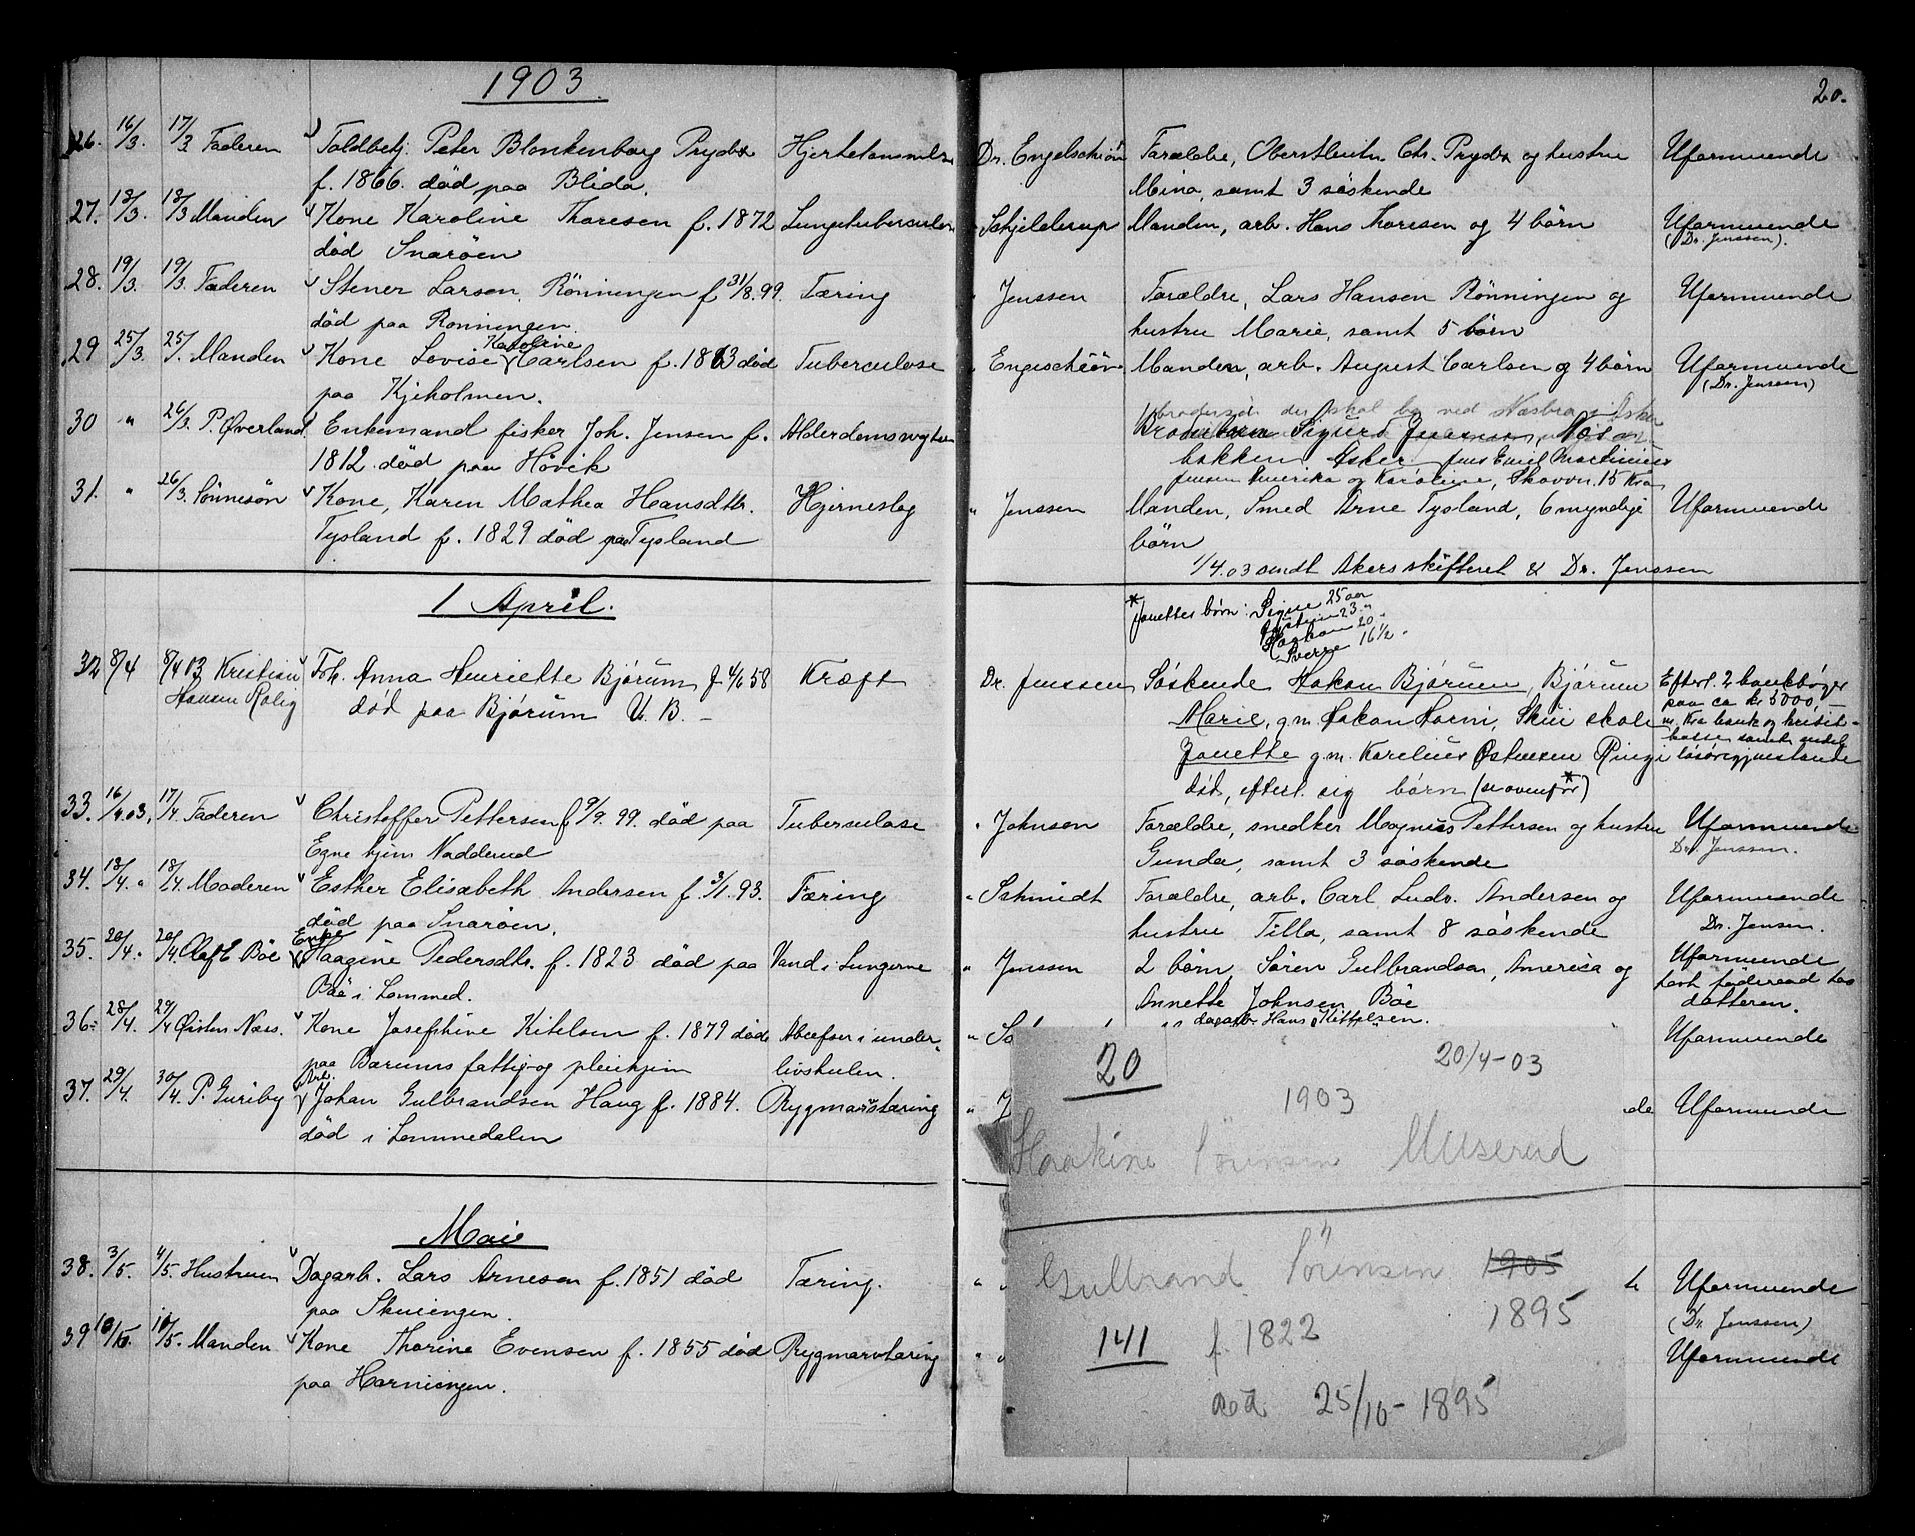 1903.
26. 16/3. 17/3 Faderen Toldbetj. Peter Blankenborg Prydz Hjertelammelse
f. 1866. død paa Blida.
27. 18/3. 18/3 Manden Kone Karoline Thoresen f. 1872 Lungetuberculose
død Snarøen
28. 19/3. 19/3. Faderen Stener Larsen Rönningen f 31/8. 99. Tæring
død paa Ronningen.
Karoline
29 25/3. 25/3. Manden Kone Lovise Carlsen f. 1863 død Tuberculose
paa Kjeholmen.
30 " 26/3. P. Øverland Enkemand fisker Joh. Jensen f. Alderdomssvaghed
1812 død paa Hövik
31. " 26/3. Sönnesön Kone, Karen Mathea Hansdtr. Hjerneslag
Tysland f. 1829 død paa Tysland
1 April.
32 8/4 8/4 03 Kristian Frk. Anna Henriette Bjørum f 4/6 58 Kræft
Hansen Rolig død paa Bjørum V. B. –
33. 16/4. 03. 17/4. Faderen Christoffer Pettersen f 9/9. 99. død paa Tuberculose
Egne hjem Nadderud
34. 18/4. " 18/4. Moderen Esther Elisabeth Andersen f. 3/1. 93. Tæring
død paa Snarøen.
Enke
35. 20/4. " 20/4. Olaf E Böe Haagine Pedersdtr. f. 1823 død paa Vand i Lungerne
Böe i Lommed.
36. 28/4. 29/4 Øisten Næss. Kone Josephine Kitelsen f. 1879 død Abcesser i under-
paa Bærums fattig og pleiehjem livshulen.
Arb.
37. 29/4. 30/4. P. Guriby Johan Gulbrandsen Haug f. 1884. Rygmarvstæring
død i Lommedalen
Mai
38. 3/5. 4/5. Hustruen Dagarb. Lars Arnesen f. 1851 død Tæring.
paa Skuiengen.
39 10/5. 10/5. Manden Kone Thorine Evensen f. 1855 død Rygmarvtæring
paa Horniengen.
20.
Dr. Engelschiøn Forældre, Oberstleutn. Chr. Prydz og hustru Uformuende
Mina, samt 3 söskende
" Schjelderup Manden, arb. Hans Thoresen og 4 börn Uformuende
(Dr. Jenssen).
" Jenssen Forældre, Lars Hansen Rönningen og Uformuende
hustru Marie, samt 5 börn
" Engeschiön Manden, arb. August Carlsen og 4 börn Uformuende
(Dr. Jenssen)
der skal bo ved Næsbra i Asker
Sigurd
bakken Asker Jens Emil Martinius
Jensen Amerika og Karoline, Skovvn. 15 Kra
" Jenssen Manden, Smed Arne Tysland, 6 myndige Uformuende
börn
1/4. 03 sendt Akers skifteret & Dr. Jenssen
* Janettes børn: Signe 25 aar
23 "
Haakon 20 "
Sverre 16 1/2 "
Dr. Jenssen Søskende Hakon Bjørum, Bjørum Efterl. 2 bankbøger
paa ca kr 5000,–
Marie, g.m. Hakon Horni, Skui skole
Janette g.m. Karelius Østensen Ringi løsøregjenstande
død, efterl. sig børn (se ovenfor *)
" Johnson Forældre, snedker Magnus Pettersen og hustru Uformuende
Gunda, samt 3 söskende Dr. Jenssen.
" Schmidt Forældre, arb. Carl Ludv. Andersen og Uformuende
hustru Tilla, samt 8 söskende Dr. Jensen.
" Jenssen 2 börn, Sören Gulbrandsen, America og Uformuende
havt föderaad hos
Annette Johnsen Böe datteren.
dagarb. Hans Kittelsen.
" Uformuende
" de Uformuende
20 20/4-03
1903
Haakine Sørensen Muserud
Gulbrand Sörensen 1905
1895
141 f. 1822
død 25/10-1895
" Uformuende
(Dr. Jenssen)
" Uformuende